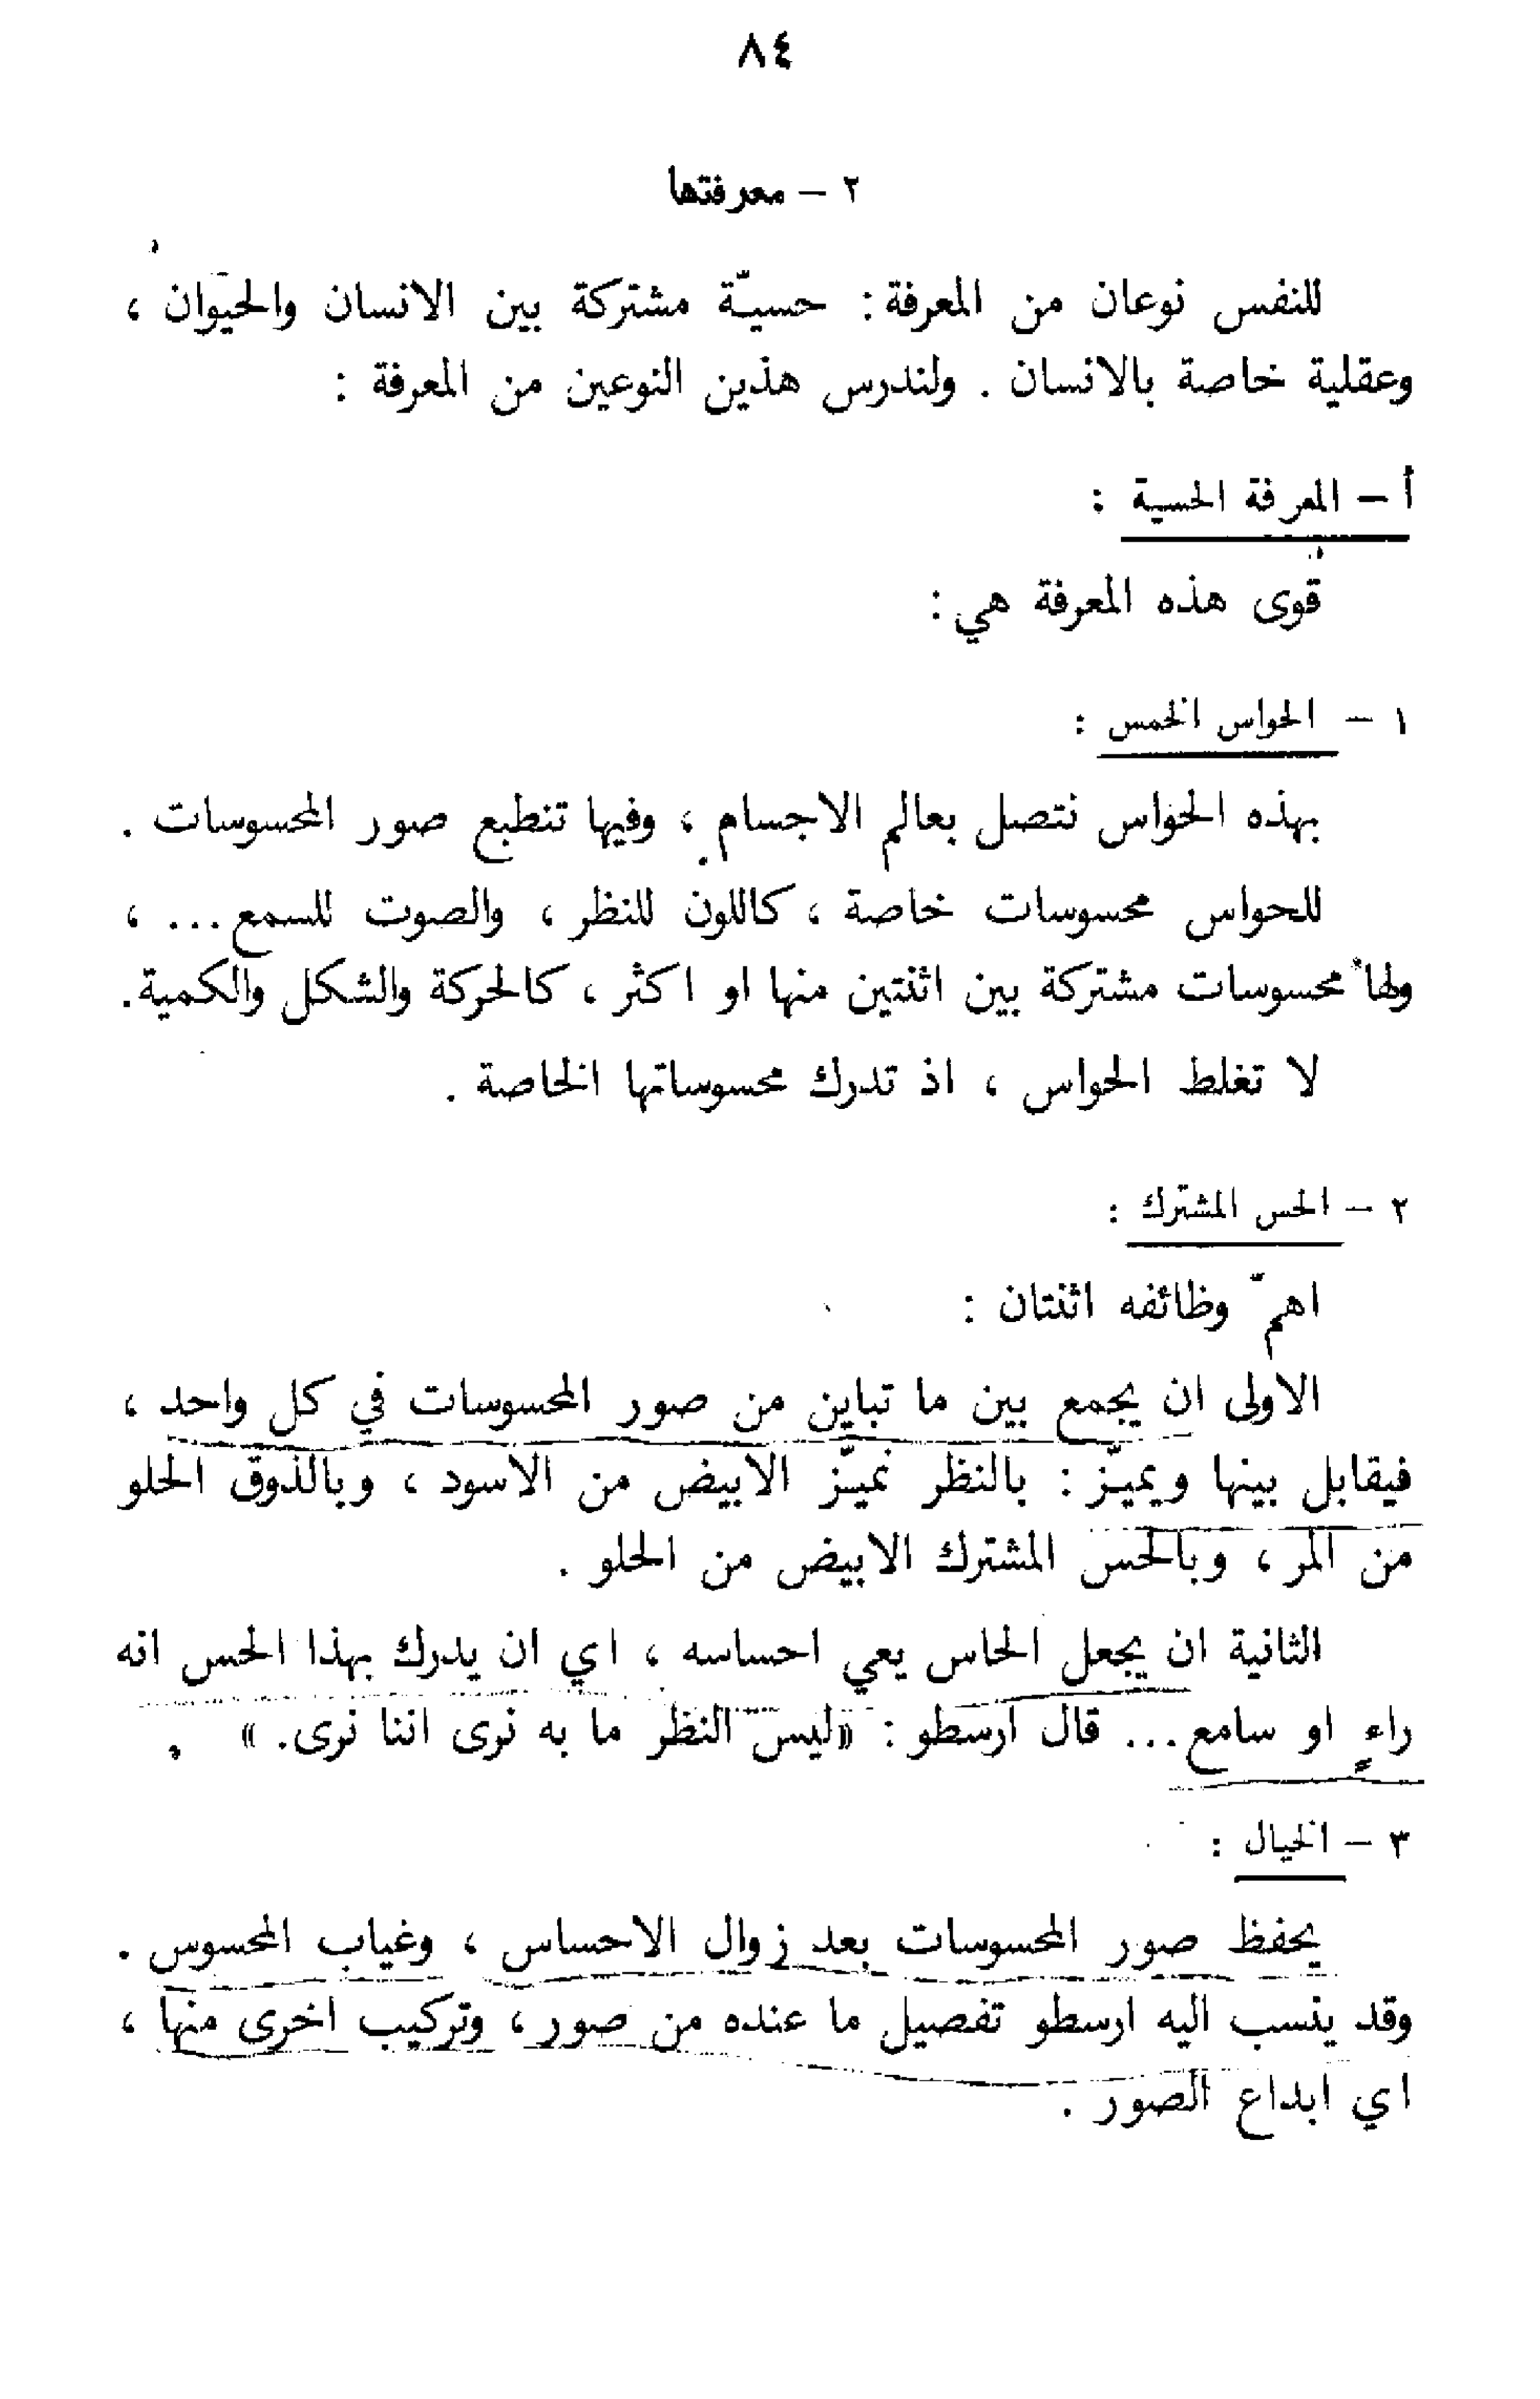 ٨٤
٢ – معرفتها
للنفس نوعان من المعرفة : حسيّة مشتركة بين الانسان والحيوان ،
وعقلية خاصة بالانسان . ولندرس هذين النوعين من المعرفة :
أ – المعرفة الحسية :
قوى هذه المعرفة هي :
١ – الحواس الخمس :
بهذه الحواس نتصل بعالم الاجسام ، وفيها تنطبع صور المحسوسات .
للحواس محسوسات خاصة ، كاللون للنظر ، والصوت للسمع ... ،
ولها محسوسات مشتركة بين اثنتين منها او اكثر ، كالحركة والشكل والكمية.
لا تغلط الحواس ، اذ تدرك محسوساتها الخاصة .
٢ – الحس المشترك :
اهمّ وظائفه اثنتان :
الاولى ان يجمع بين ما تباين من صور المحسوسات في كل واحد ،
فيقابل بينها ويميّز : بالنظر نميّز الابيض من الاسود ، وبالذوق الحلو
من المر ، وبالحس المشترك الابيض من الحلو .
الثانية ان يجعل الحاس يعي احساسه ، اي ان يدرك بهذا الحس انه
راءٍ او سامع ... قال ارسطو : «ليس النظر ما به نرى اننا نرى. » .
٣ – الخيال :
يحفظ صور المحسوسات بعد زوال الاحساس ، وغياب المحسوس .
وقد ينسب اليه ارسطو تفصيل ما عنده من صور ، وتركيب اخرى منها ،
اي ابداع الصور .